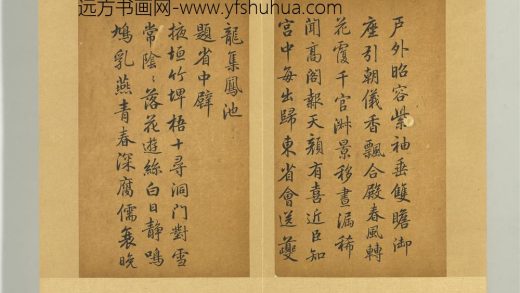 远方书画网-www.yfshuhua.com
戶外昭容紫袖垂雙瞻御
座引朝儀香飄合殿春風轉
花覆千官淑景移晝漏稀
聞高閣報天顏有喜近臣知
宮中每出歸東省會送夔
龍集鳳池
題省中壁
掖垣竹埤梧十尋洞門對雪
常陰〻落花遊絲白日靜鳴
鳩乳燕青春深腐儒衰晚